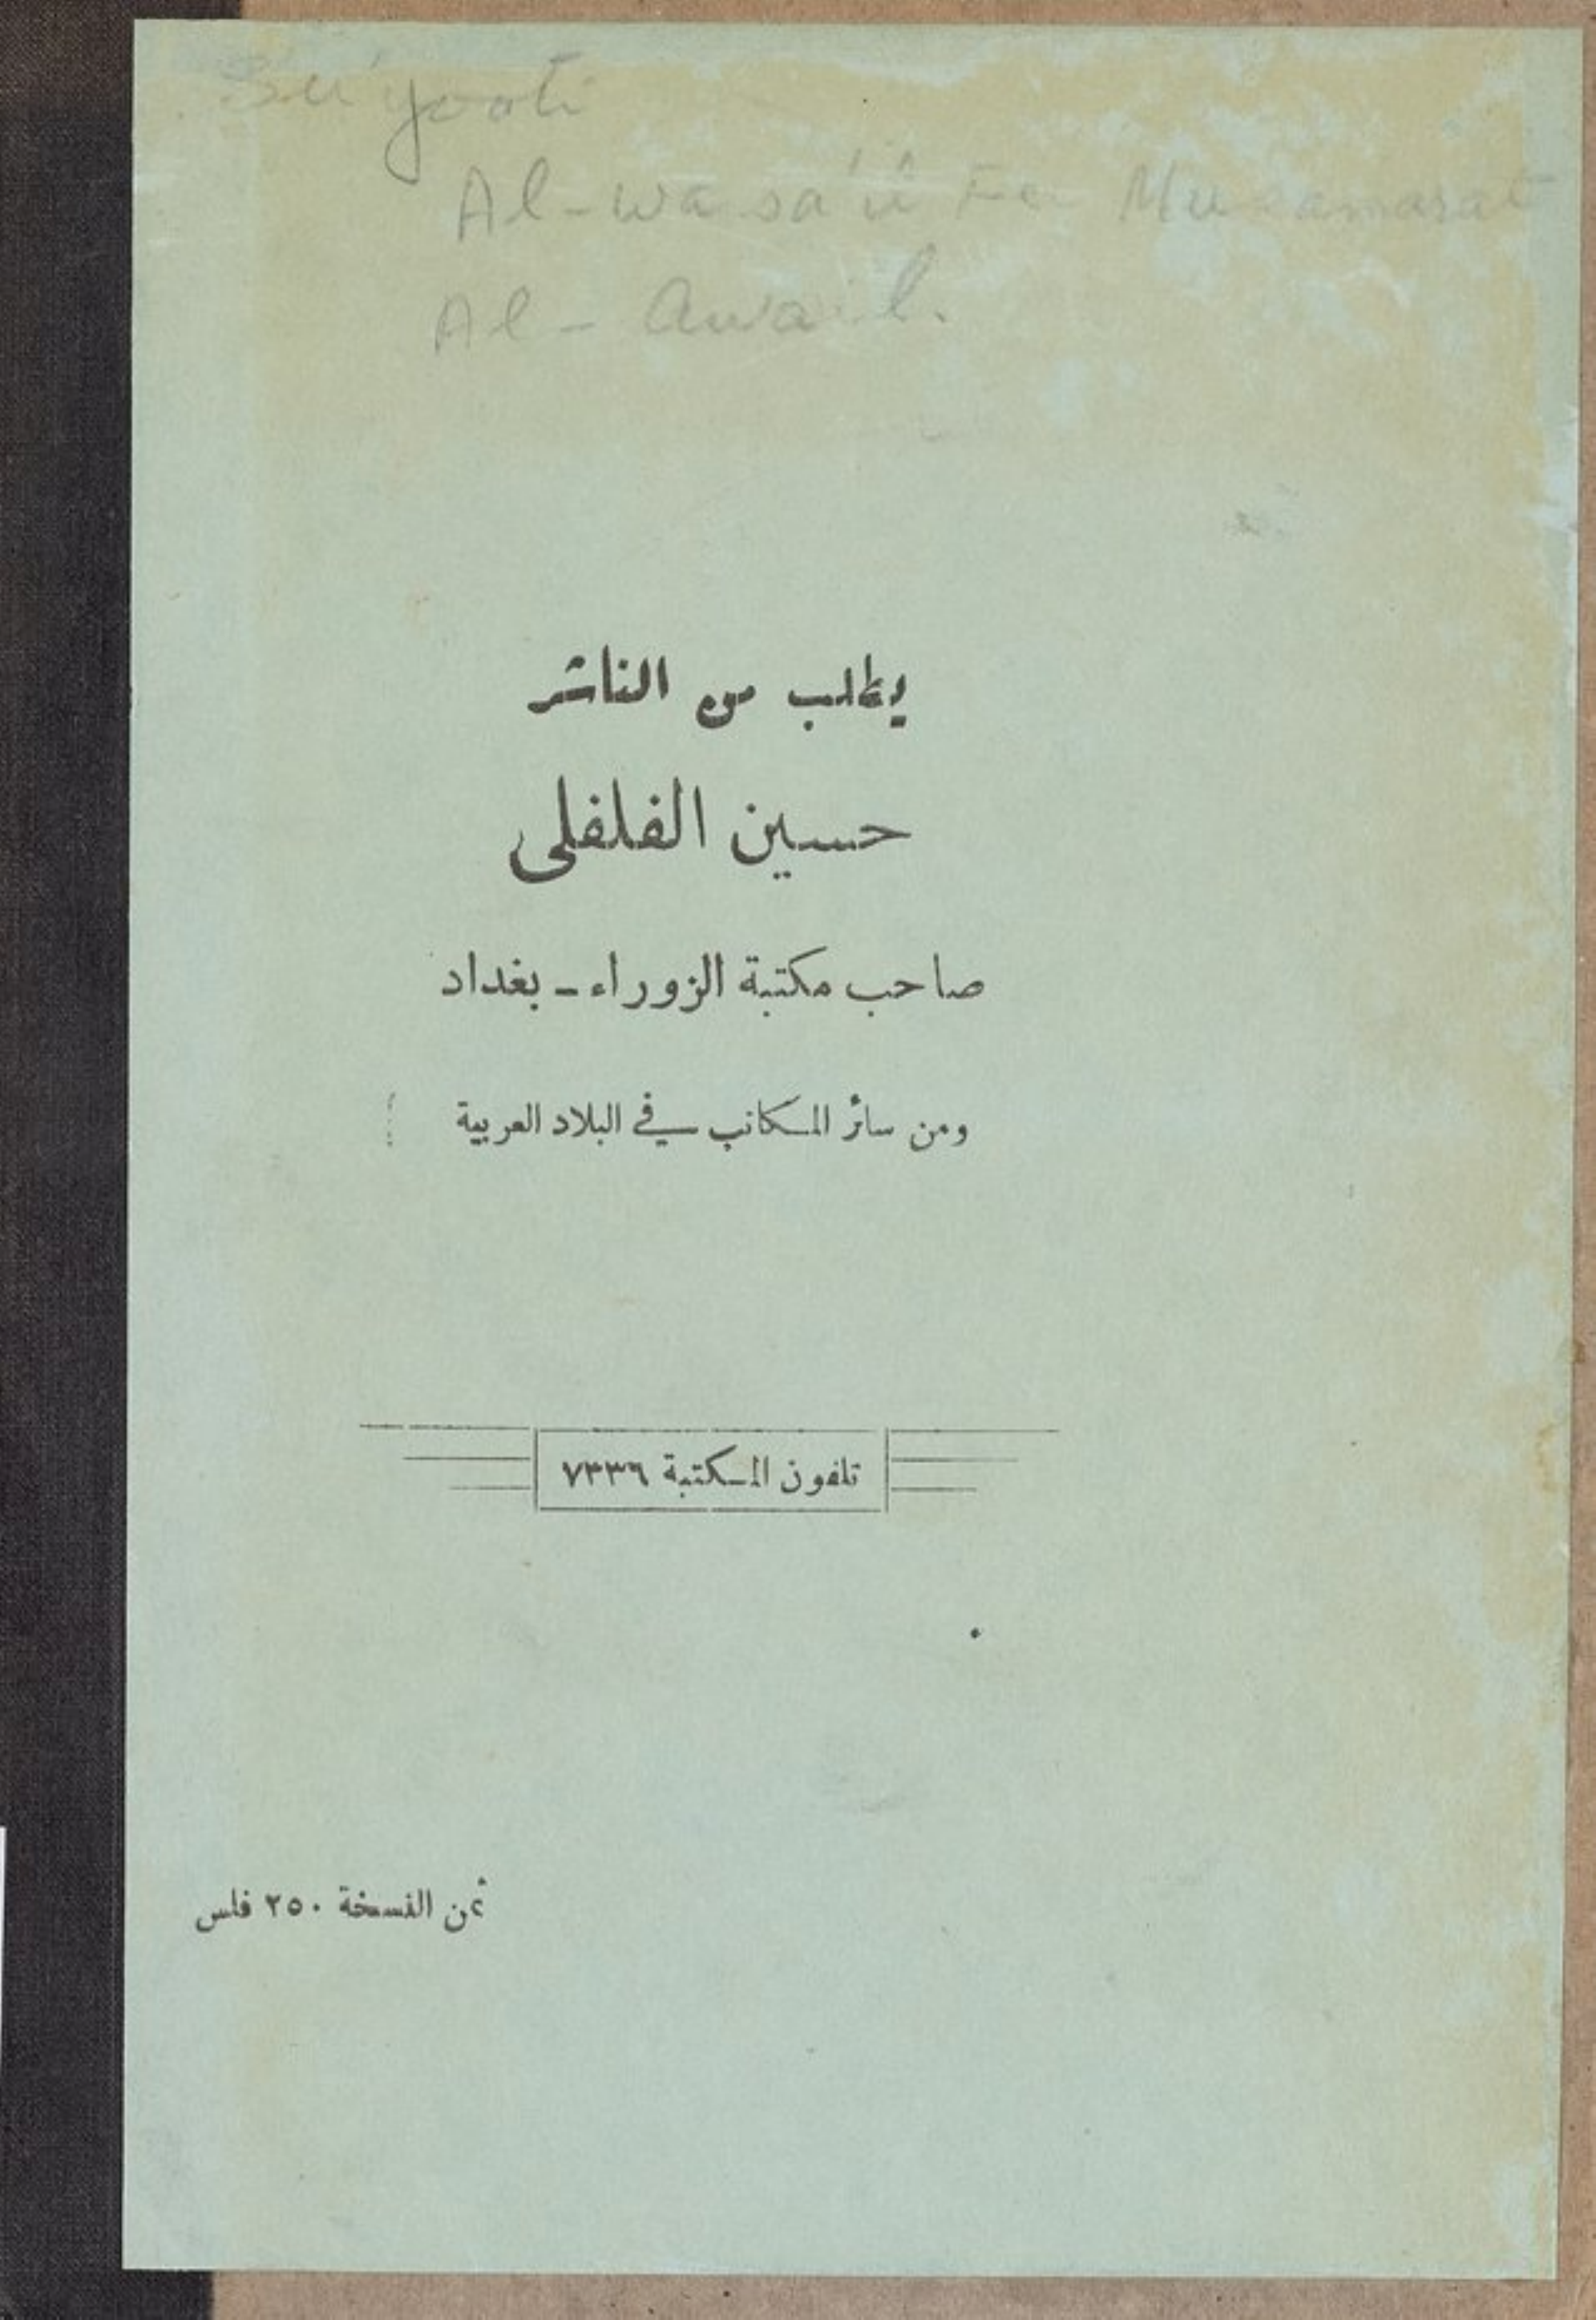 Su'yooti
Al-wasa'il Fe
Al-Awail.
يطلب من الناشر
حسين الفلفلى
صاحب مكتبة الزوراء - بغداد
ومن سائر المكاتب في البلاد العربية
تلفون المكتبة ٧٣٣٦
ثمن النسخة ٢٥٠ فلس